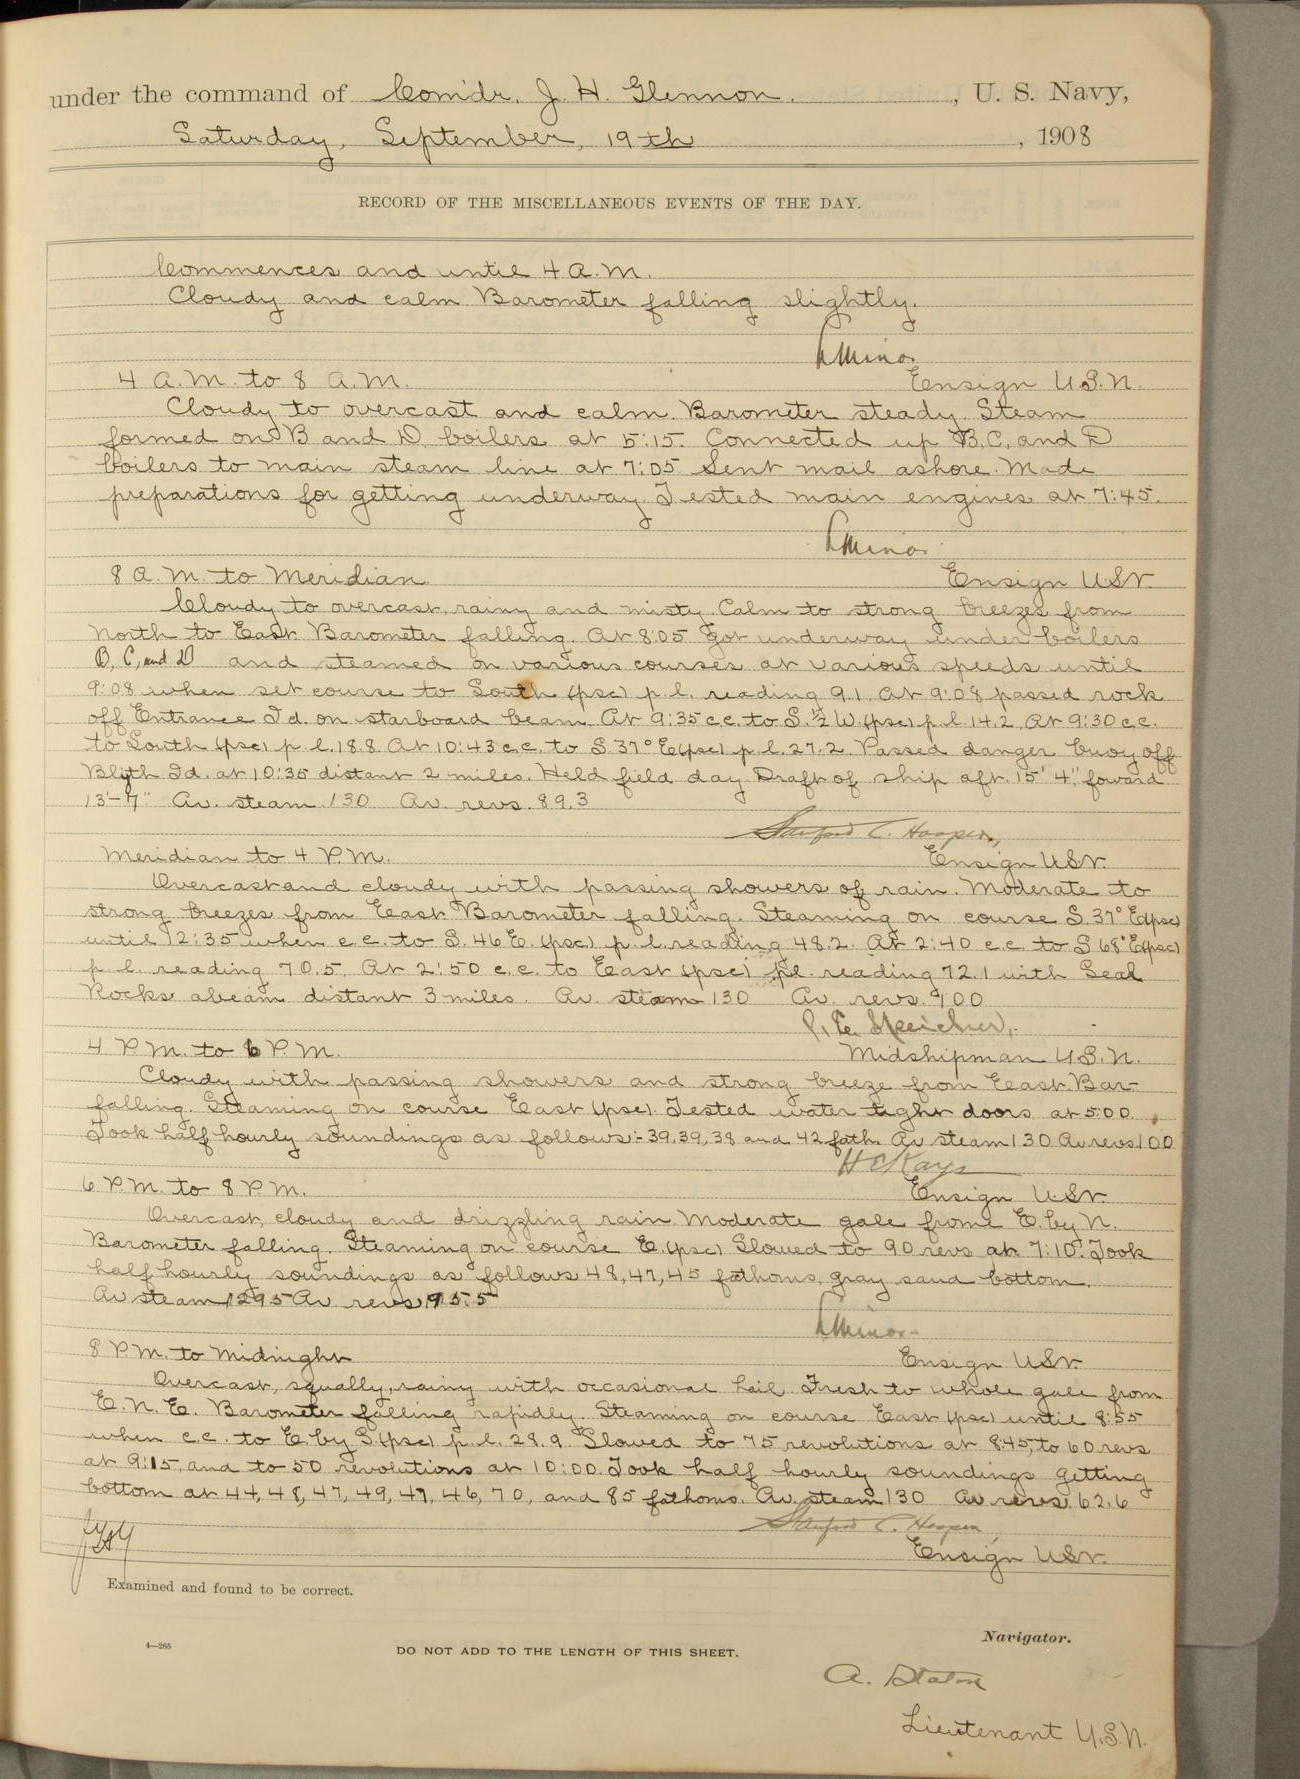 under the command of Com'dr. J. H. Glennon, U. S. Navy,
Saturday, September, 19th, 1908
RECORD OF THE MISCELLANEOUS EVENTS OF THE DAY.
Commences and until 4 A.M.
Cloudy and calm Barometer falling slightly.
LMinor
4 A.M. to 8 A.M. Ensign U.S.N.
Cloudy to overcast and calm. Barometer steady. Steam
formed on B and D boilers at 5:15. Connected up B, C, and D
boilers to main steam line at 7:05 Sent mail ashore. Made
preparations for getting underway. Tested main engines at 7:45.
LMinor
8 A.M. to Meridian Ensign USN.
Cloudy to overcast, rainy and misty. Calm to strong breezes from
North to East. Barometer falling. At 8:05 got underway under boilers
B, C, and D and steamed on various courses at various speeds until
9:08 when set course to South (psc) p.l. reading 9.1. At 9:08 passed rock
off Entrance Id. on starboard beam. At 9:35 c.c. to S. ½ W. (psc) p.l. 14.2. At 9:30 c.c.
to South (psc) p.l. 18.8. At 10:43 c.c. to S 37° E (psc) p.l. 27.2. Passed danger buoy off
Blyth Id. at 10:35 distant 2 miles. Held field day. Draft of ship aft. 15' 4", foward
13'-7" Av. steam 130 Av. revs. 89.3
Stanford C. Hooper,
Meridian to 4 P.M. Ensign USN.
Overcast and cloudy with passing showers of rain. Moderate to
strong breezes from East. Barometer falling. Steaming on course S. 37° E (psc)
until 12:35 when c.c. to S. 46 E. (psc) p.l. reading 48.2. At 2:40 c.c. to S 68° E (psc)
p.l. reading 70.5. At 2:50 c.c. to East (psc) p.l. reading 72.1 with Seal
Rocks abeam distant 3 miles. Av. steam 130 Av. revs. 100
Speicher,
4 P.M. to 6 P.M. Midshipman U.S.N.
Cloudy with passing showers and strong breeze from East. Bar
falling. Steaming on course East (psc). Tested water tight doors at 5:00.
Took half hourly soundings as follows:- 39, 39, 38 and 42 fath. Av steam 130 Av revs. 100
H C Kays
6 P.M. to 8 P.M. Ensign USN.
Overcast, cloudy and drizzling rain. Moderate gale from E. by N.
Barometer falling. Steaming on course E. (psc) Slowed to 90 revs at 7:10. Took
half hourly soundings as follows 48, 47, 45 fathoms, gray sand bottom.
Av steam 129.5 Av revs 95.5
LMinor
8 P.M. to Midnight Ensign USN
Overcast, squally, rainy with occasional hail. Fresh to whole gale from
E. N. E. Barometer falling rapidly. Steaming on course East (psc) until 8:55
when c.c. to E by S (psc) p.l. 28.9. Slowed to 75 revolutions at 8:45, to 60 revs
at 9:15, and to 50 revolutions at 10:00. Took half hourly soundings getting
bottom at 44, 48, 47, 49, 47, 46, 70, and 85 fathoms. Av. steam 130 Av revs. 62.6
Stanford C. Hooper,
Ensign USN.
Examined and found to be correct.
Navigator.
4—265
DO NOT ADD TO THE LENGTH OF THIS SHEET.
A. Staton
Lieutenant U.S.N.